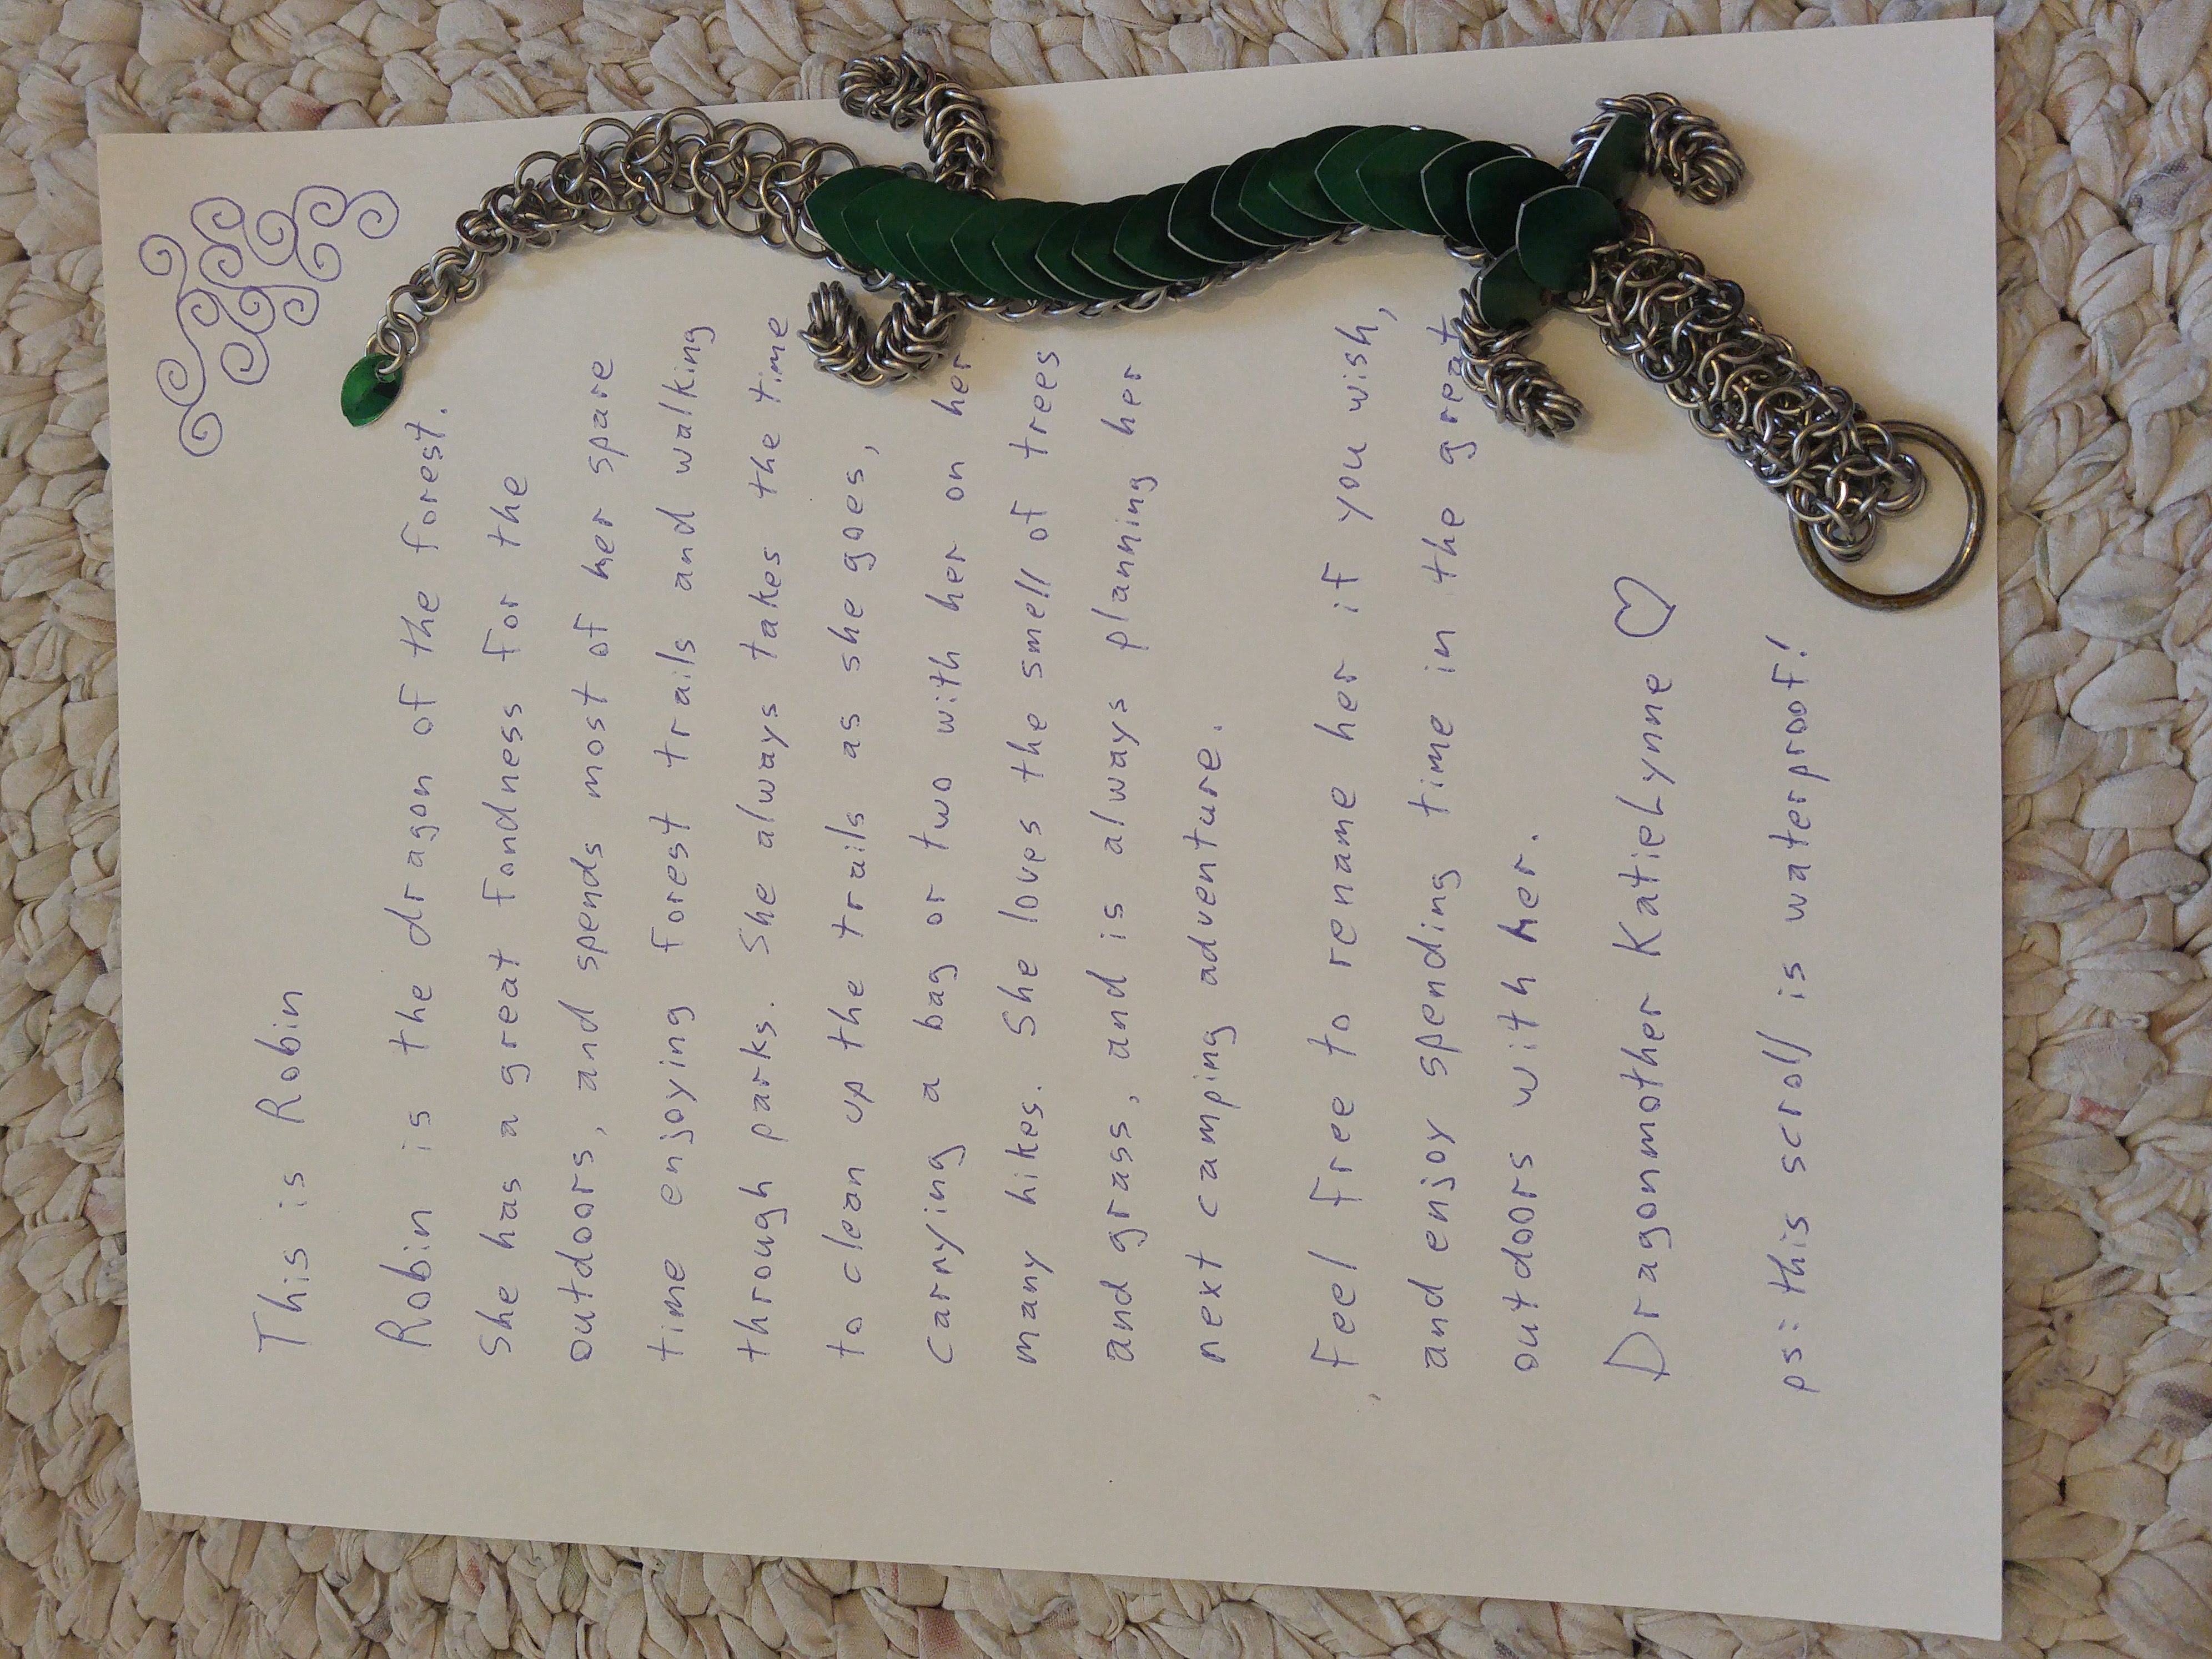 This is Robin
Robin is the dragon of the forest.
She has a great fondness for the
outdoors, and spends most of her spare
time enjoying forest trails and walking
through parks. She always takes the time
to clean up the trails as she goes,
carrying a bag or two with her on her
many hikes. She loves the smell of trees
and grass, and is always planning her
next camping adventure.
Feel free to rename her if you wish,
and enjoy spending time in the great
outdoors with her.
Dragonmother KatieLynne ♡
ps: this scroll is waterproof!